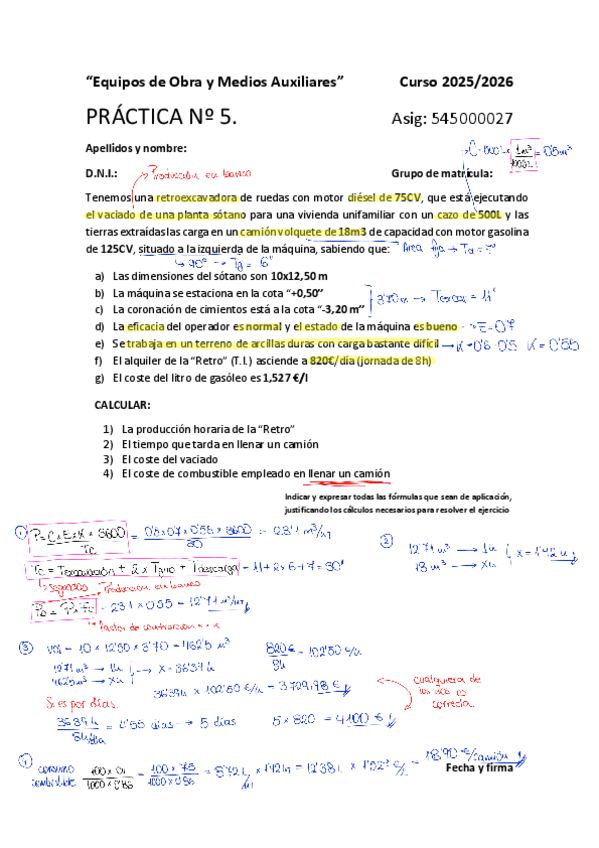 “Equipos de Obra y Medios Auxiliares” Curso 2025/2026
PRÁCTICA Nº 5. Asig: 545000027
Apellidos y nombre:
D.N.I.: Producción en banco Grupo de matrícula:
Tenemos una retroexcavadora de ruedas con motor diésel de 75CV, que está ejecutando
el vaciado de una planta sótano para una vivienda unifamiliar con un cazo de 500L y las
tierras extraídas las carga en un camión volquete de 18m3 de capacidad con motor gasolina
de 125CV, situado a la izquierda de la máquina, sabiendo que:
a) Las dimensiones del sótano son 10x12,50 m
b) La máquina se estaciona en la cota “+0,50”
3'70 m → Texcav = 11"
c) La coronación de cimientos está a la cota “-3,20 m”
d) La eficacia del operador es normal y el estado de la máquina es bueno → E=0'7
e) Se trabaja en un terreno de arcillas duras con carga bastante difícil → K=0'6-0'5 K=0'55
f) El alquiler de la “Retro” (T.I.) asciende a 820€/día (jornada de 8h)
g) El coste del litro de gasóleo es 1,527 €/l
CALCULAR:
1) La producción horaria de la “Retro”
2) El tiempo que tarda en llenar un camión
3) El coste del vaciado
4) El coste de combustible empleado en llenar un camión
Indicar y expresar todas las fórmulas que sean de aplicación,
justificando los cálculos necesarios para resolver el ejercicio
① P = C x E x K x 3600 / Tc = 0'5 x 0'7 x 0'55 x 3600 / 30 = 23'1 m³/h
② 12'71 m³ → 1h
18 m³ → x
x = 1'42 h
Tc = Texcavación + 2 x Tgiro + Tdescarga = 11 + 2 x 6 + 7 = 30"
segundos Producción en banco
Pb = P x Fc = 23'1 x 0'55 = 12'71 m³/h
factor de contracción
③ Vol = 10 x 12'50 x 3'70 = 462'5 m³
820€ / 8h = 102'50 €/h
12'71 m³ → 1h
462'5 m³ → x h
x = 36'39 h
36'39 h x 102'50 €/h = 3729,98 €
cualquiera de
los dos es
correcta
Si es por días.
36'39 h / 8h/día = 4'55 días → 5 días 5 x 820 = 4100 €
④ consumo combustible 100 x CV / 1000 x 0'86 = 100 x 75 / 1000 x 0'86 = 8'72 L/h x 1'42 h = 12'38 L x 1'527 €/L = 18'90 €/camión
Fecha y firma